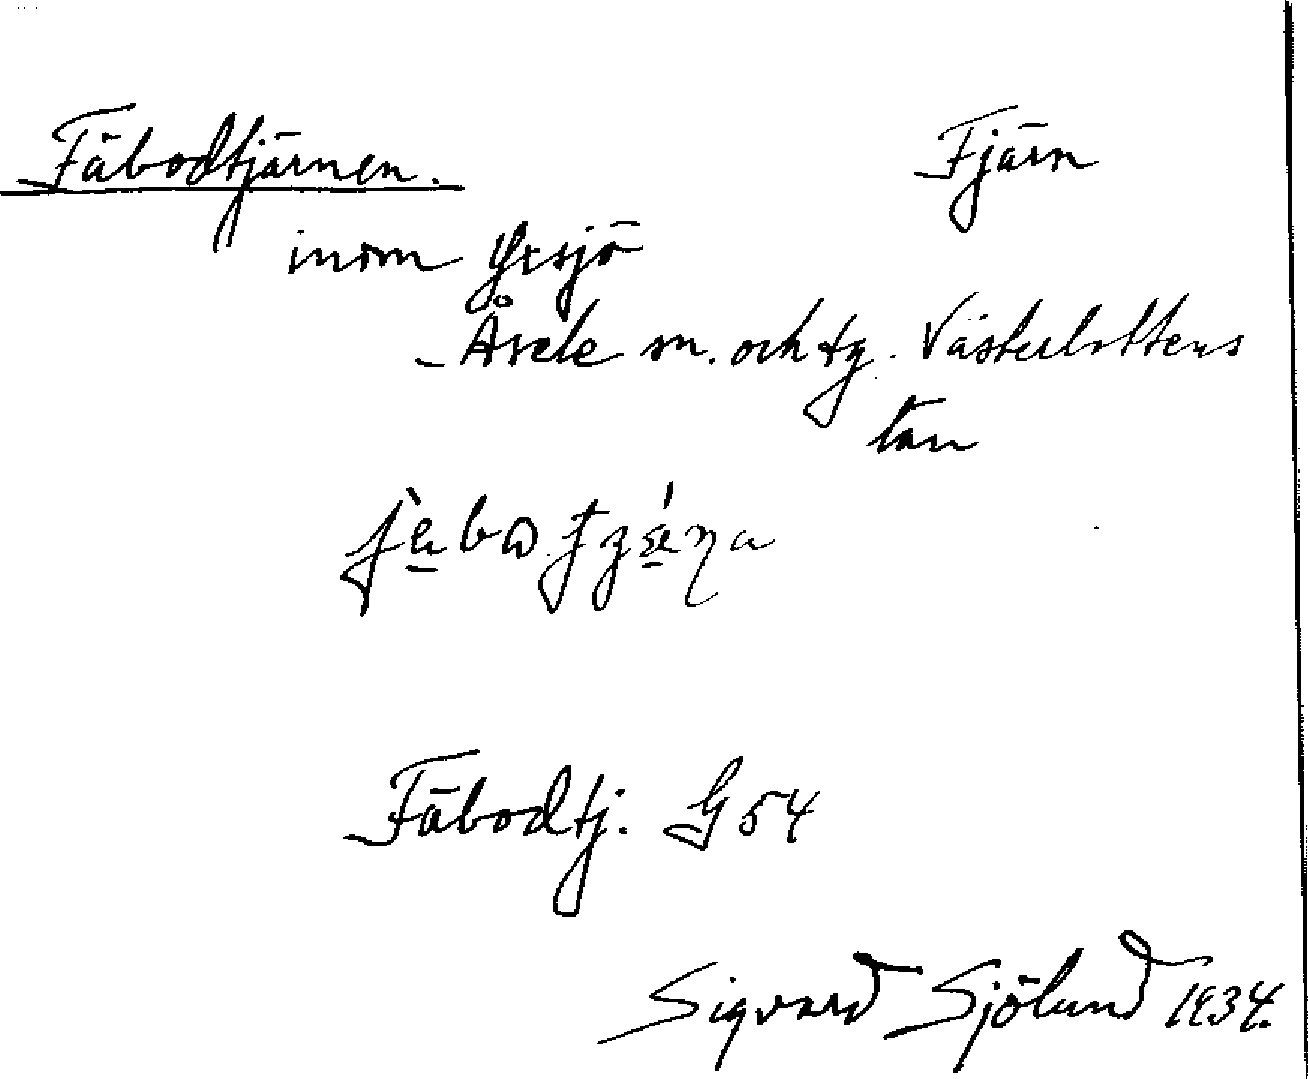 Fäbodtjärnen. Tjärn
inom Yxsjö
Åsele sn. och tg. Västerbottens
län
Fäbodtj. G 54
Sigvard Sjölund 1934.